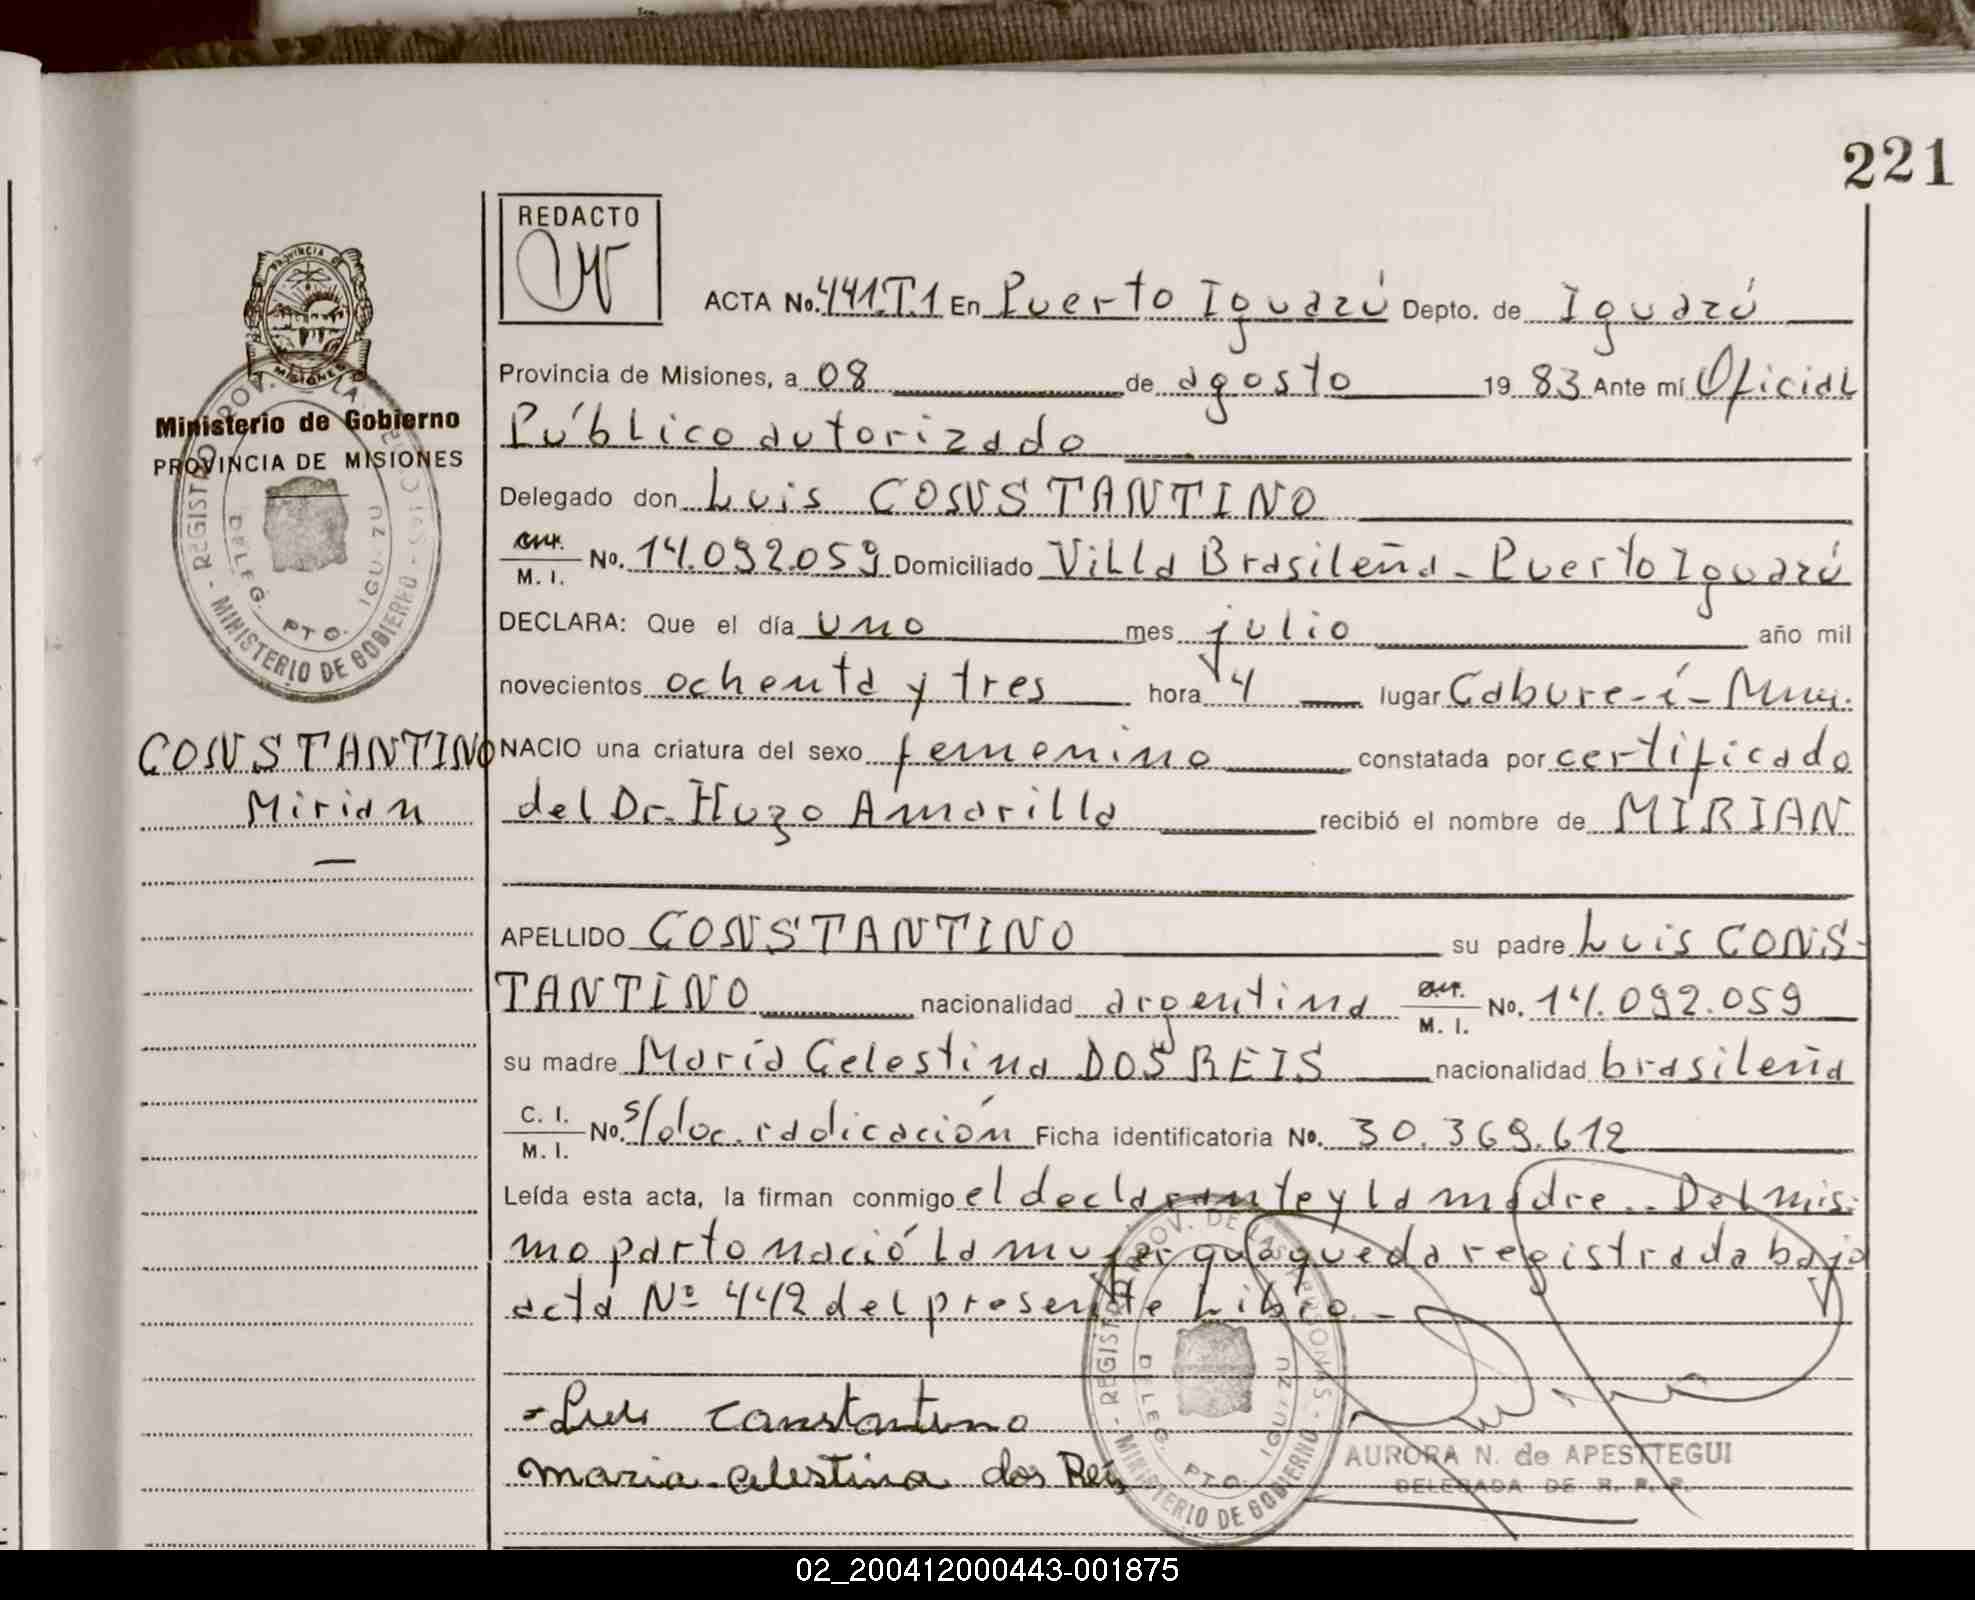 221
REDACTO
ACTA No. 441.T.1 En Puerto Iguazú Depto. de Iguazú
Provincia de Misiones, a 08 de agosto 19 83 Ante mí Oficial
Público autorizado
Delegado don Luis CONSTANTINO
M. I. No. 14.092.059 Domiciliado Villa Brasileña - Puerto Iguazú
DECLARA: Que el día uno mes julio año mil
novecientos ochenta y tres hora 4 lugar Cabure-í - Mnes.
NACIO una criatura del sexo femenino constatada por certificado
del Dr. Hugo Amarilla recibió el nombre de MIRIAN
APELLIDO CONSTANTINO su padre Luis CONS-
TANTINO nacionalidad argentina M. I. No. 14.092.059
su madre María Celestina DOS REIS nacionalidad brasileña
C. I. M. I. No. s/doc. radicación Ficha identificatoria No. 30.369.612
Leída esta acta, la firman conmigo el declarante y la madre.. Del mis-
mo parto nació la mujer que queda registrada bajo
acta Nº 442 del presente Libro.-
Luis Constantino
Maria celestina dos Reis
AURORA N. de APESTTEGUI
DELEGADA DE R. P. P.
PROVINCIA DE MISIONES
Ministerio de Gobierno
PROVINCIA DE MISIONES
CONSTANTINO
Mirian
REGISTRO PROV. DE LAS PERSONAS - MINISTERIO DE GOBIERNO
DELEG. PTO. IGUAZU
REGISTRO PROV. DE LAS PERSONAS - MINISTERIO DE GOBIERNO
DELEG. PTO. IGUAZU
02_200412000443-001875